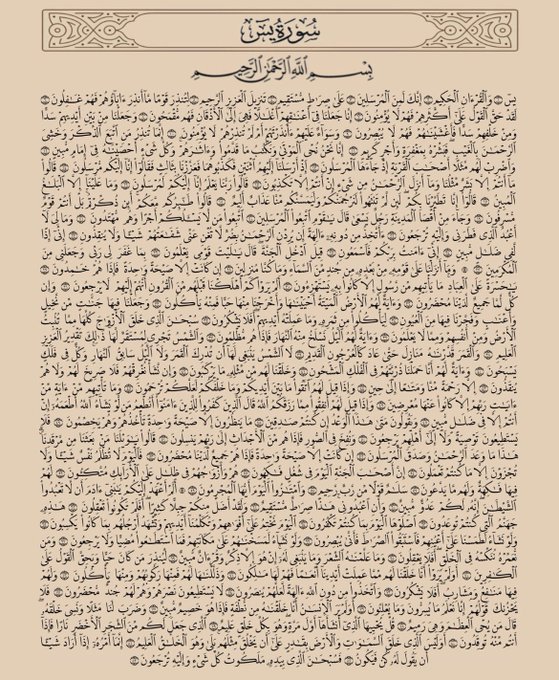 سُورَةُ يسٓ
بِسْمِ اللَّهِ الرَّحْمَٰنِ الرَّحِيمِ
يسٓ ۝ وَالْقُرْءَانِ الْحَكِيمِ ۝ إِنَّكَ لَمِنَ الْمُرْسَلِينَ ۝ عَلَىٰ صِرَاطٍ مُّسْتَقِيمٍ ۝ تَنزِيلَ الْعَزِيزِ الرَّحِيمِ ۝ لِتُنذِرَ قَوْمًا مَّا أُنذِرَ ءَابَاؤُهُمْ فَهُمْ غَافِلُونَ ۝
لَقَدْ حَقَّ الْقَوْلُ عَلَىٰ أَكْثَرِهِمْ فَهُمْ لَا يُؤْمِنُونَ ۝ إِنَّا جَعَلْنَا فِي أَعْنَاقِهِمْ أَغْلَالًا فَهِيَ إِلَى الْأَذْقَانِ فَهُم مُّقْمَحُونَ ۝ وَجَعَلْنَا مِن بَيْنِ أَيْدِيهِمْ سَدًّا
وَمِنْ خَلْفِهِمْ سَدًّا فَأَغْشَيْنَاهُمْ فَهُمْ لَا يُبْصِرُونَ ۝ وَسَوَاءٌ عَلَيْهِمْ ءَأَنذَرْتَهُمْ أَمْ لَمْ تُنذِرْهُمْ لَا يُؤْمِنُونَ ۝ إِنَّمَا تُنذِرُ مَنِ اتَّبَعَ الذِّكْرَ وَخَشِيَ
الرَّحْمَٰنَ بِالْغَيْبِ فَبَشِّرْهُ بِمَغْفِرَةٍ وَأَجْرٍ كَرِيمٍ ۝ إِنَّا نَحْنُ نُحْيِ الْمَوْتَىٰ وَنَكْتُبُ مَا قَدَّمُوا وَءَاثَارَهُمْ وَكُلَّ شَيْءٍ أَحْصَيْنَاهُ فِي إِمَامٍ مُّبِينٍ ۝
وَاضْرِبْ لَهُم مَّثَلًا أَصْحَابَ الْقَرْيَةِ إِذْ جَاءَهَا الْمُرْسَلُونَ ۝ إِذْ أَرْسَلْنَا إِلَيْهِمُ اثْنَيْنِ فَكَذَّبُوهُمَا فَعَزَّزْنَا بِثَالِثٍ فَقَالُوا إِنَّا إِلَيْكُم مُّرْسَلُونَ ۝ قَالُوا
مَا أَنتُمْ إِلَّا بَشَرٌ مِّثْلُنَا وَمَا أَنزَلَ الرَّحْمَٰنُ مِن شَيْءٍ إِنْ أَنتُمْ إِلَّا تَكْذِبُونَ ۝ قَالُوا رَبُّنَا يَعْلَمُ إِنَّا إِلَيْكُمْ لَمُرْسَلُونَ ۝ وَمَا عَلَيْنَا إِلَّا الْبَلَاغُ
الْمُبِينُ ۝ قَالُوا إِنَّا تَطَيَّرْنَا بِكُمْ لَئِن لَّمْ تَنتَهُوا لَنَرْجُمَنَّكُمْ وَلَيَمَسَّنَّكُم مِّنَّا عَذَابٌ أَلِيمٌ ۝ قَالُوا طَائِرُكُم مَّعَكُمْ أَئِن ذُكِّرْتُم بَلْ أَنتُمْ قَوْمٌ
مُّسْرِفُونَ ۝ وَجَاءَ مِنْ أَقْصَا الْمَدِينَةِ رَجُلٌ يَسْعَىٰ قَالَ يَاقَوْمِ اتَّبِعُوا الْمُرْسَلِينَ ۝ اتَّبِعُوا مَن لَّا يَسْأَلُكُمْ أَجْرًا وَهُم مُّهْتَدُونَ ۝ وَمَا لِيَ لَا
أَعْبُدُ الَّذِي فَطَرَنِي وَإِلَيْهِ تُرْجَعُونَ ۝ ءَأَتَّخِذُ مِن دُونِهِ ءَالِهَةً إِن يُرِدْنِ الرَّحْمَٰنُ بِضُرٍّ لَّا تُغْنِ عَنِّي شَفَاعَتُهُمْ شَيْئًا وَلَا يُنقِذُونِ ۝ إِنِّي إِذًا
لَّفِي ضَلَالٍ مُّبِينٍ ۝ إِنِّي ءَامَنتُ بِرَبِّكُمْ فَاسْمَعُونِ ۝ قِيلَ ادْخُلِ الْجَنَّةَ قَالَ يَالَيْتَ قَوْمِي يَعْلَمُونَ ۝ بِمَا غَفَرَ لِي رَبِّي وَجَعَلَنِي مِنَ
الْمُكْرَمِينَ ۝ وَمَا أَنزَلْنَا عَلَىٰ قَوْمِهِ مِن بَعْدِهِ مِن جُندٍ مِّنَ السَّمَاءِ وَمَا كُنَّا مُنزِلِينَ ۝ إِن كَانَتْ إِلَّا صَيْحَةً وَاحِدَةً فَإِذَا هُمْ خَامِدُونَ ۝
يَاحَسْرَةً عَلَى الْعِبَادِ مَا يَأْتِيهِم مِّن رَّسُولٍ إِلَّا كَانُوا بِهِ يَسْتَهْزِءُونَ ۝ أَلَمْ يَرَوْا كَمْ أَهْلَكْنَا قَبْلَهُم مِّنَ الْقُرُونِ أَنَّهُمْ إِلَيْهِمْ لَا يَرْجِعُونَ ۝ وَإِن
كُلٌّ لَّمَّا جَمِيعٌ لَّدَيْنَا مُحْضَرُونَ ۝ وَءَايَةٌ لَّهُمُ الْأَرْضُ الْمَيْتَةُ أَحْيَيْنَاهَا وَأَخْرَجْنَا مِنْهَا حَبًّا فَمِنْهُ يَأْكُلُونَ ۝ وَجَعَلْنَا فِيهَا جَنَّاتٍ مِّن نَّخِيلٍ
وَأَعْنَابٍ وَفَجَّرْنَا فِيهَا مِنَ الْعُيُونِ ۝ لِيَأْكُلُوا مِن ثَمَرِهِ وَمَا عَمِلَتْهُ أَيْدِيهِمْ أَفَلَا يَشْكُرُونَ ۝ سُبْحَانَ الَّذِي خَلَقَ الْأَزْوَاجَ كُلَّهَا مِمَّا تُنبِتُ
الْأَرْضُ وَمِنْ أَنفُسِهِمْ وَمِمَّا لَا يَعْلَمُونَ ۝ وَءَايَةٌ لَّهُمُ اللَّيْلُ نَسْلَخُ مِنْهُ النَّهَارَ فَإِذَا هُم مُّظْلِمُونَ ۝ وَالشَّمْسُ تَجْرِي لِمُسْتَقَرٍّ لَّهَا ذَٰلِكَ تَقْدِيرُ الْعَزِيزِ
الْعَلِيمِ ۝ وَالْقَمَرَ قَدَّرْنَاهُ مَنَازِلَ حَتَّىٰ عَادَ كَالْعُرْجُونِ الْقَدِيمِ ۝ لَا الشَّمْسُ يَنبَغِي لَهَا أَن تُدْرِكَ الْقَمَرَ وَلَا اللَّيْلُ سَابِقُ النَّهَارِ وَكُلٌّ فِي فَلَكٍ
يَسْبَحُونَ ۝ وَءَايَةٌ لَّهُمْ أَنَّا حَمَلْنَا ذُرِّيَّتَهُمْ فِي الْفُلْكِ الْمَشْحُونِ ۝ وَخَلَقْنَا لَهُم مِّن مِّثْلِهِ مَا يَرْكَبُونَ ۝ وَإِن نَّشَأْ نُغْرِقْهُمْ فَلَا صَرِيخَ لَهُمْ وَلَا هُمْ
يُنقَذُونَ ۝ إِلَّا رَحْمَةً مِّنَّا وَمَتَاعًا إِلَىٰ حِينٍ ۝ وَإِذَا قِيلَ لَهُمُ اتَّقُوا مَا بَيْنَ أَيْدِيكُمْ وَمَا خَلْفَكُمْ لَعَلَّكُمْ تُرْحَمُونَ ۝ وَمَا تَأْتِيهِم مِّنْ ءَايَةٍ مِّنْ
ءَايَاتِ رَبِّهِمْ إِلَّا كَانُوا عَنْهَا مُعْرِضِينَ ۝ وَإِذَا قِيلَ لَهُمْ أَنفِقُوا مِمَّا رَزَقَكُمُ اللَّهُ قَالَ الَّذِينَ كَفَرُوا لِلَّذِينَ ءَامَنُوا أَنُطْعِمُ مَن لَّوْ يَشَاءُ اللَّهُ أَطْعَمَهُ إِنْ
أَنتُمْ إِلَّا فِي ضَلَالٍ مُّبِينٍ ۝ وَيَقُولُونَ مَتَىٰ هَٰذَا الْوَعْدُ إِن كُنتُمْ صَادِقِينَ ۝ مَا يَنظُرُونَ إِلَّا صَيْحَةً وَاحِدَةً تَأْخُذُهُمْ وَهُمْ يَخِصِّمُونَ ۝ فَلَا
يَسْتَطِيعُونَ تَوْصِيَةً وَلَا إِلَىٰ أَهْلِهِمْ يَرْجِعُونَ ۝ وَنُفِخَ فِي الصُّورِ فَإِذَا هُم مِّنَ الْأَجْدَاثِ إِلَىٰ رَبِّهِمْ يَنسِلُونَ ۝ قَالُوا يَاوَيْلَنَا مَن بَعَثَنَا مِن مَّرْقَدِنَا
هَٰذَا مَا وَعَدَ الرَّحْمَٰنُ وَصَدَقَ الْمُرْسَلُونَ ۝ إِن كَانَتْ إِلَّا صَيْحَةً وَاحِدَةً فَإِذَا هُمْ جَمِيعٌ لَّدَيْنَا مُحْضَرُونَ ۝ فَالْيَوْمَ لَا تُظْلَمُ نَفْسٌ شَيْئًا وَلَا
تُجْزَوْنَ إِلَّا مَا كُنتُمْ تَعْمَلُونَ ۝ إِنَّ أَصْحَابَ الْجَنَّةِ الْيَوْمَ فِي شُغُلٍ فَاكِهُونَ ۝ هُمْ وَأَزْوَاجُهُمْ فِي ظِلَالٍ عَلَى الْأَرَائِكِ مُتَّكِئُونَ ۝ لَهُمْ
فِيهَا فَاكِهَةٌ وَلَهُم مَّا يَدَّعُونَ ۝ سَلَامٌ قَوْلًا مِّن رَّبٍّ رَّحِيمٍ ۝ وَامْتَازُوا الْيَوْمَ أَيُّهَا الْمُجْرِمُونَ ۝ أَلَمْ أَعْهَدْ إِلَيْكُمْ يَابَنِي ءَادَمَ أَن لَّا تَعْبُدُوا
الشَّيْطَانَ إِنَّهُ لَكُمْ عَدُوٌّ مُّبِينٌ ۝ وَأَنِ اعْبُدُونِي هَٰذَا صِرَاطٌ مُّسْتَقِيمٌ ۝ وَلَقَدْ أَضَلَّ مِنكُمْ جِبِلًّا كَثِيرًا أَفَلَمْ تَكُونُوا تَعْقِلُونَ ۝ هَٰذِهِ
جَهَنَّمُ الَّتِي كُنتُمْ تُوعَدُونَ ۝ اصْلَوْهَا الْيَوْمَ بِمَا كُنتُمْ تَكْفُرُونَ ۝ الْيَوْمَ نَخْتِمُ عَلَىٰ أَفْوَاهِهِمْ وَتُكَلِّمُنَا أَيْدِيهِمْ وَتَشْهَدُ أَرْجُلُهُم بِمَا كَانُوا يَكْسِبُونَ ۝
وَلَوْ نَشَاءُ لَطَمَسْنَا عَلَىٰ أَعْيُنِهِمْ فَاسْتَبَقُوا الصِّرَاطَ فَأَنَّىٰ يُبْصِرُونَ ۝ وَلَوْ نَشَاءُ لَمَسَخْنَاهُمْ عَلَىٰ مَكَانَتِهِمْ فَمَا اسْتَطَاعُوا مُضِيًّا وَلَا يَرْجِعُونَ ۝ وَمَن
نُّعَمِّرْهُ نُنَكِّسْهُ فِي الْخَلْقِ أَفَلَا يَعْقِلُونَ ۝ وَمَا عَلَّمْنَاهُ الشِّعْرَ وَمَا يَنبَغِي لَهُ إِنْ هُوَ إِلَّا ذِكْرٌ وَقُرْءَانٌ مُّبِينٌ ۝ لِّيُنذِرَ مَن كَانَ حَيًّا وَيَحِقَّ الْقَوْلُ عَلَى
الْكَافِرِينَ ۝ أَوَلَمْ يَرَوْا أَنَّا خَلَقْنَا لَهُم مِّمَّا عَمِلَتْ أَيْدِينَا أَنْعَامًا فَهُمْ لَهَا مَالِكُونَ ۝ وَذَلَّلْنَاهَا لَهُمْ فَمِنْهَا رَكُوبُهُمْ وَمِنْهَا يَأْكُلُونَ ۝ وَلَهُمْ
فِيهَا مَنَافِعُ وَمَشَارِبُ أَفَلَا يَشْكُرُونَ ۝ وَاتَّخَذُوا مِن دُونِ اللَّهِ ءَالِهَةً لَّعَلَّهُمْ يُنصَرُونَ ۝ لَا يَسْتَطِيعُونَ نَصْرَهُمْ وَهُمْ لَهُمْ جُندٌ مُّحْضَرُونَ ۝ فَلَا
يَحْزُنكَ قَوْلُهُمْ إِنَّا نَعْلَمُ مَا يُسِرُّونَ وَمَا يُعْلِنُونَ ۝ أَوَلَمْ يَرَ الْإِنسَانُ أَنَّا خَلَقْنَاهُ مِن نُّطْفَةٍ فَإِذَا هُوَ خَصِيمٌ مُّبِينٌ ۝ وَضَرَبَ لَنَا مَثَلًا وَنَسِيَ خَلْقَهُ
قَالَ مَن يُحْيِ الْعِظَامَ وَهِيَ رَمِيمٌ ۝ قُلْ يُحْيِيهَا الَّذِي أَنشَأَهَا أَوَّلَ مَرَّةٍ وَهُوَ بِكُلِّ خَلْقٍ عَلِيمٌ ۝ الَّذِي جَعَلَ لَكُم مِّنَ الشَّجَرِ الْأَخْضَرِ نَارًا فَإِذَا
أَنتُم مِّنْهُ تُوقِدُونَ ۝ أَوَلَيْسَ الَّذِي خَلَقَ السَّمَاوَاتِ وَالْأَرْضَ بِقَادِرٍ عَلَىٰ أَن يَخْلُقَ مِثْلَهُم بَلَىٰ وَهُوَ الْخَلَّاقُ الْعَلِيمُ ۝ إِنَّمَا أَمْرُهُ إِذَا أَرَادَ شَيْئًا
أَن يَقُولَ لَهُ كُن فَيَكُونُ ۝ فَسُبْحَانَ الَّذِي بِيَدِهِ مَلَكُوتُ كُلِّ شَيْءٍ وَإِلَيْهِ تُرْجَعُونَ ۝